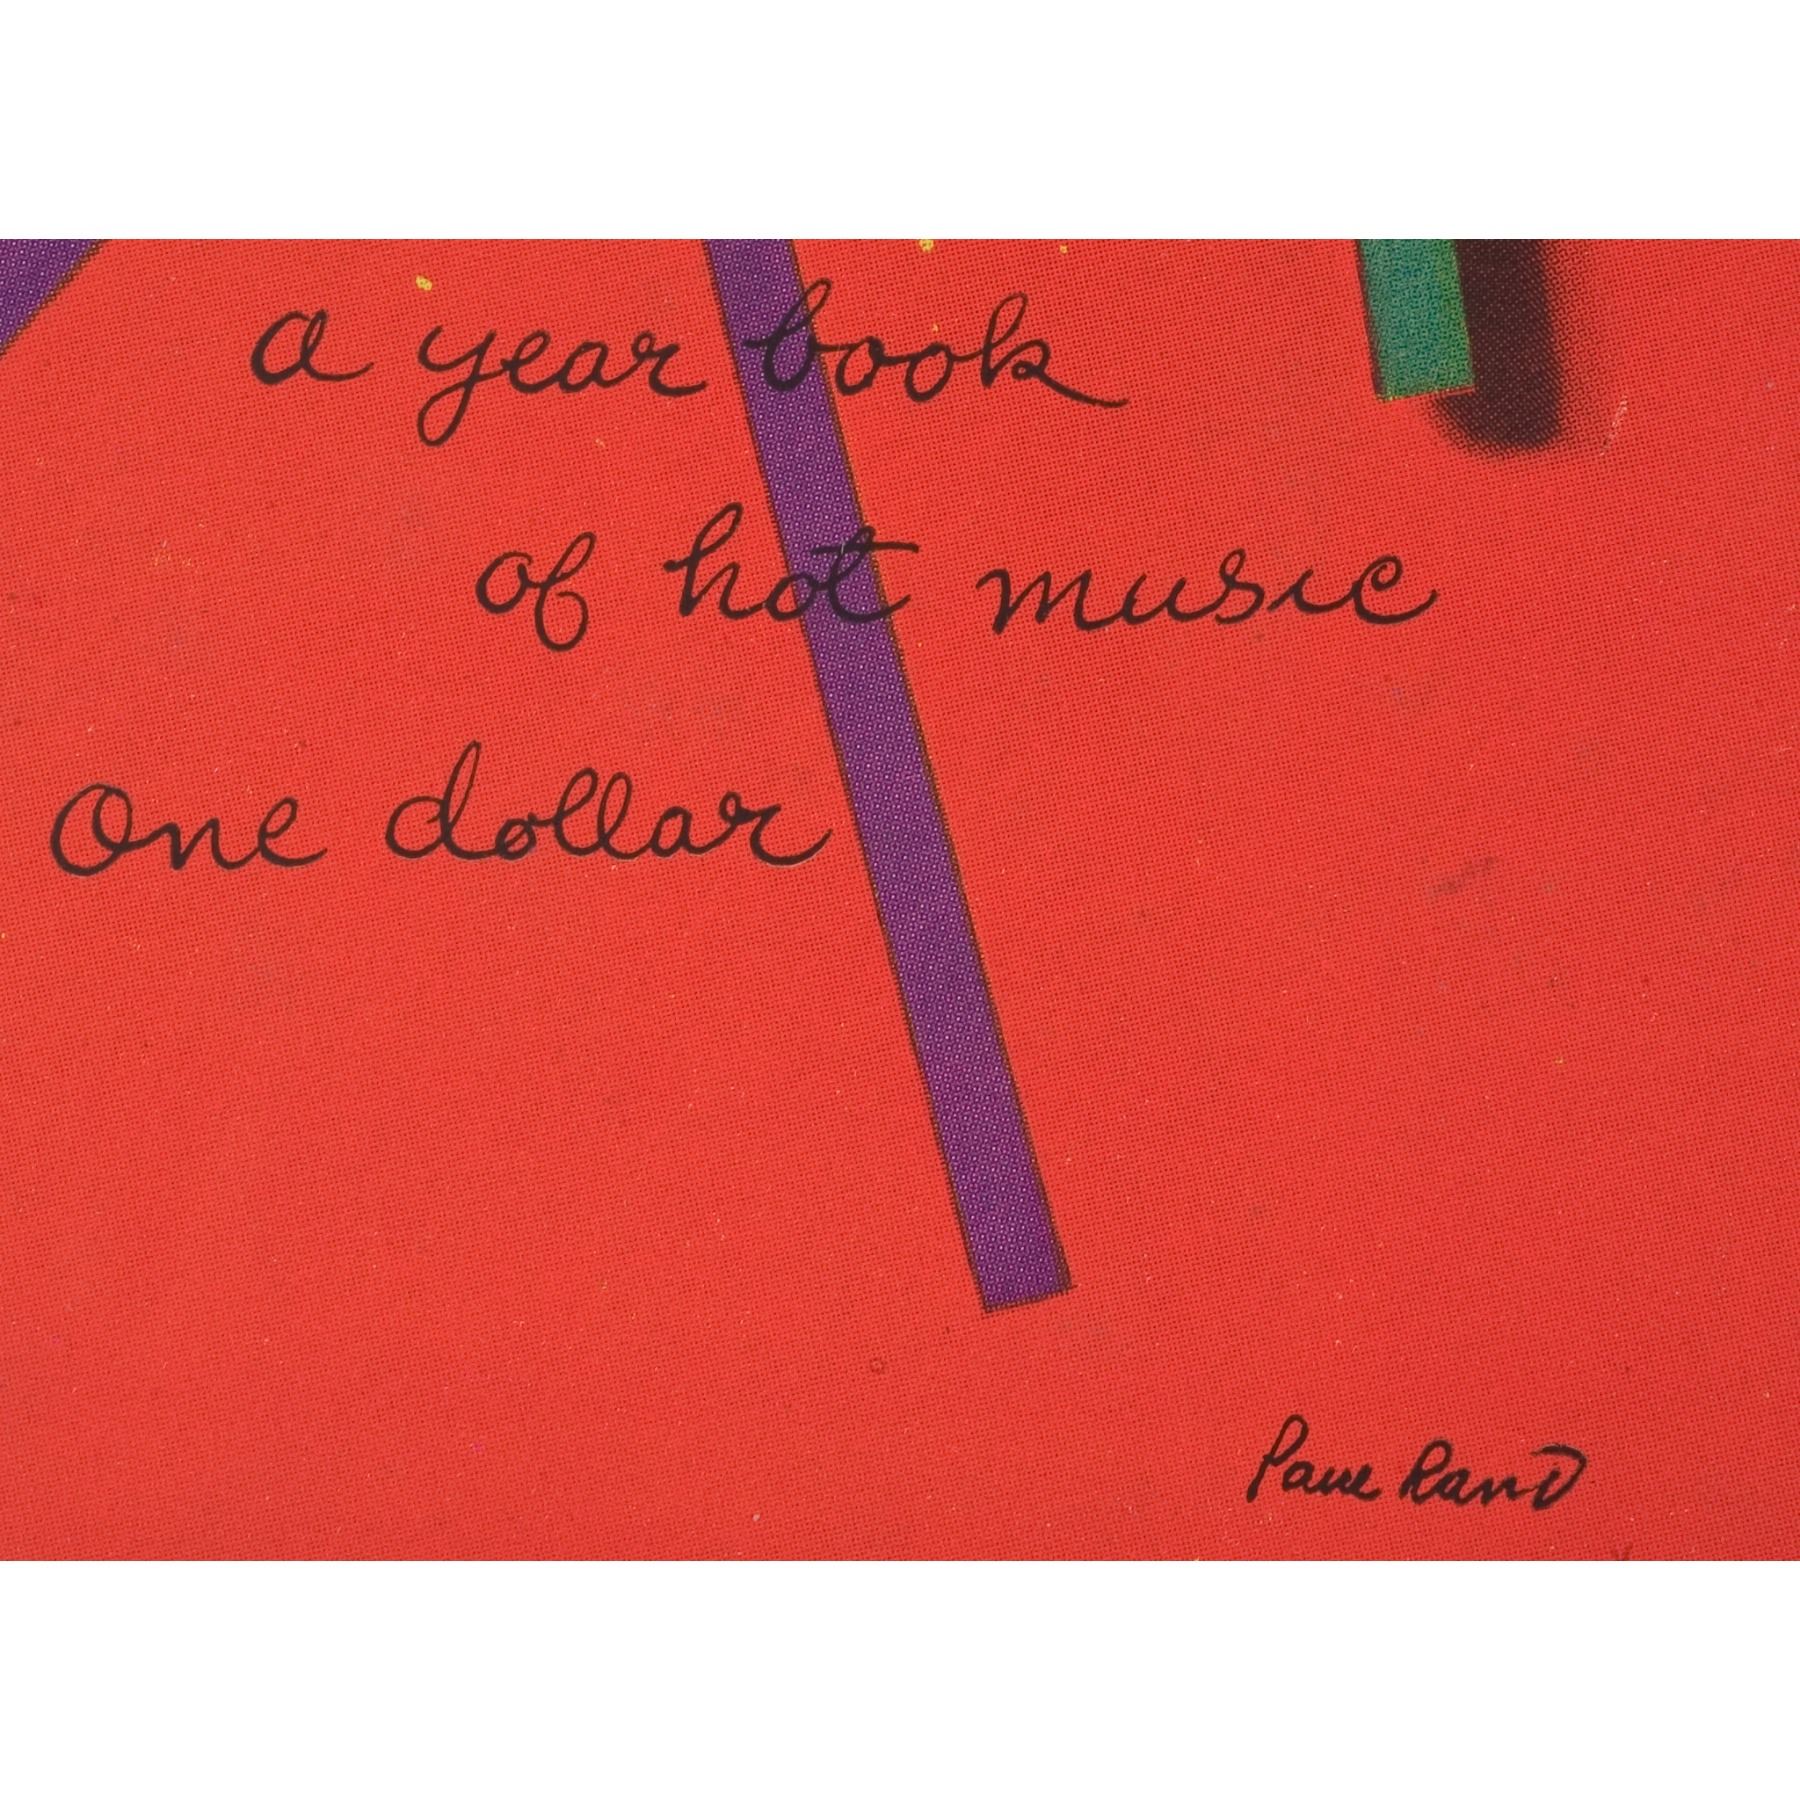 a year book
of hot music
One dollar
Paul Rand